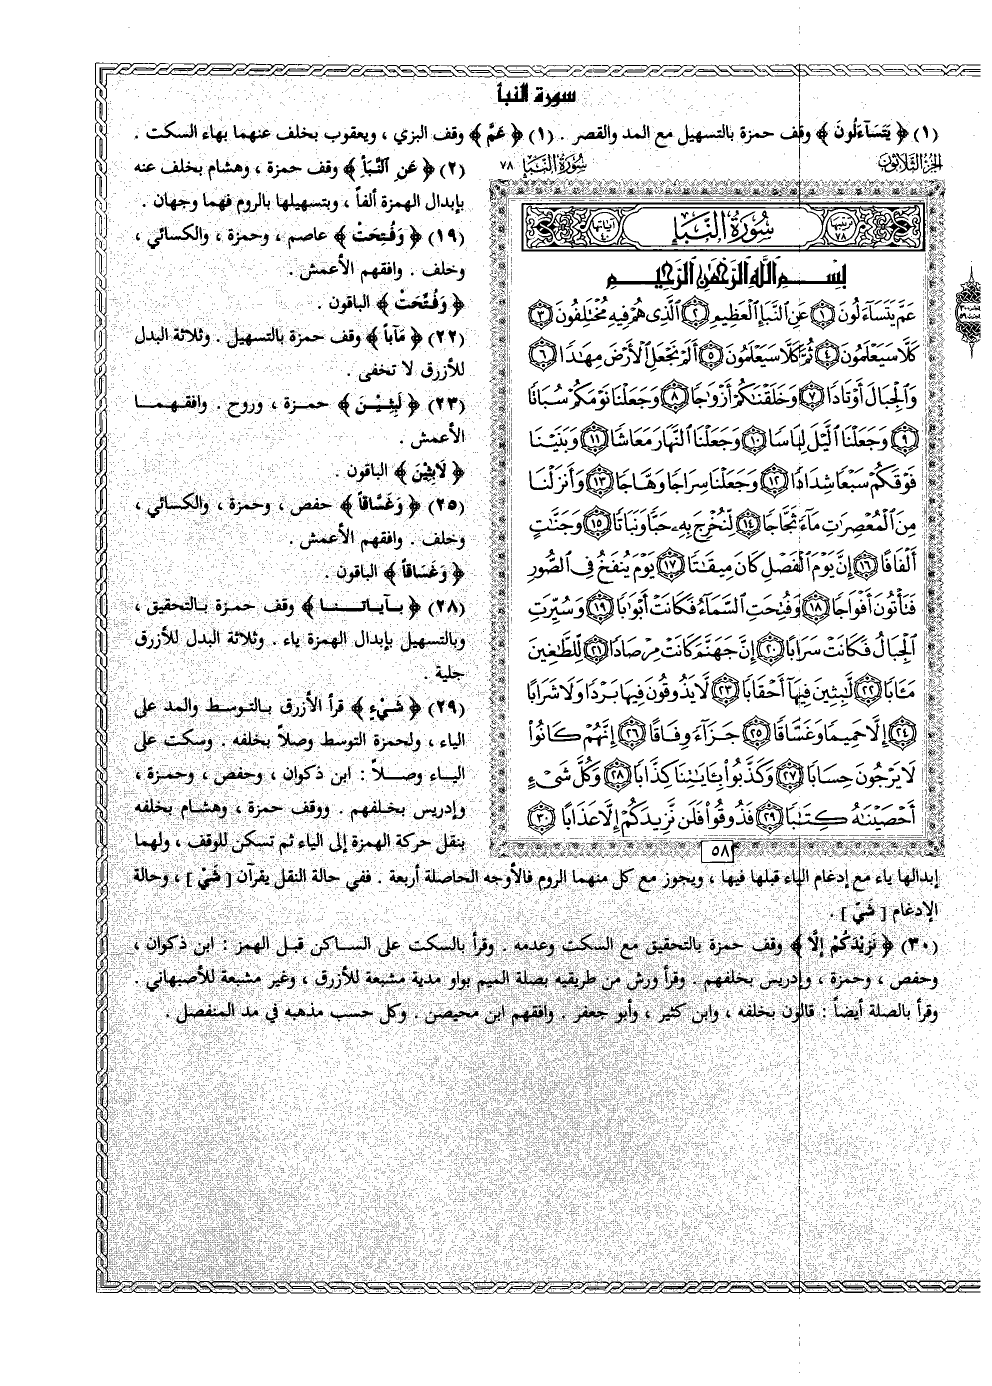 سورة النبأ
(١) ﴿ يَتَسَآءَلُونَ ﴾ وقف حمزة بالتسهيل مع المد والقصر . (١) ﴿ عَمَّ ﴾ وقف البزي ، ويعقوب بخلف عنهما بهاء السكت .
الجزء الثلاثون
سُورَةُ النَّبَإِ ٧٨
سُورَةُ النَّبَإِ
ترتيبها ٧٨
آياتها ٤٠
بِسْمِ اللَّهِ الرَّحْمَٰنِ الرَّحِيمِ
عَمَّ يَتَسَآءَلُونَ ١ عَنِ ٱلنَّبَإِ ٱلْعَظِيمِ ٢ ٱلَّذِى هُمْ فِيهِ مُخْتَلِفُونَ ٣
كَلَّا سَيَعْلَمُونَ ٤ ثُمَّ كَلَّا سَيَعْلَمُونَ ٥ أَلَمْ نَجْعَلِ ٱلْأَرْضَ مِهَٰدًا ٦
وَٱلْجِبَالَ أَوْتَادًا ٧ وَخَلَقْنَٰكُمْ أَزْوَٰجًا ٨ وَجَعَلْنَا نَوْمَكُمْ سُبَاتًا
٩ وَجَعَلْنَا ٱلَّيْلَ لِبَاسًا ١٠ وَجَعَلْنَا ٱلنَّهَارَ مَعَاشًا ١١ وَبَنَيْنَا
فَوْقَكُمْ سَبْعًا شِدَادًا ١٢ وَجَعَلْنَا سِرَاجًا وَهَّاجًا ١٣ وَأَنزَلْنَا
مِنَ ٱلْمُعْصِرَٰتِ مَآءً ثَجَّاجًا ١٤ لِّنُخْرِجَ بِهِۦ حَبًّا وَنَبَاتًا ١٥ وَجَنَّٰتٍ
أَلْفَافًا ١٦ إِنَّ يَوْمَ ٱلْفَصْلِ كَانَ مِيقَٰتًا ١٧ يَوْمَ يُنفَخُ فِى ٱلصُّورِ
فَتَأْتُونَ أَفْوَاجًا ١٨ وَفُتِحَتِ ٱلسَّمَآءُ فَكَانَتْ أَبْوَٰبًا ١٩ وَسُيِّرَتِ
ٱلْجِبَالُ فَكَانَتْ سَرَابًا ٢٠ إِنَّ جَهَنَّمَ كَانَتْ مِرْصَادًا ٢١ لِّلطَّٰغِينَ
مَـَٔابًا ٢٢ لَّٰبِثِينَ فِيهَآ أَحْقَابًا ٢٣ لَّا يَذُوقُونَ فِيهَا بَرْدًا وَلَا شَرَابًا
٢٤ إِلَّا حَمِيمًا وَغَسَّاقًا ٢٥ جَزَآءً وِفَاقًا ٢٦ إِنَّهُمْ كَانُوا۟
لَا يَرْجُونَ حِسَابًا ٢٧ وَكَذَّبُوا۟ بِـَٔايَٰتِنَا كِذَّابًا ٢٨ وَكُلَّ شَىْءٍ
أَحْصَيْنَٰهُ كِتَٰبًا ٢٩ فَذُوقُوا۟ فَلَن نَّزِيدَكُمْ إِلَّا عَذَابًا ٣٠
٥٨٢
(٢) ﴿ عَنِ النَّبَأِ ﴾ وقف حمزة ، وهشام بخلف عنه
بإبدال الهمزة ألفاً ، وبتسهيلها بالروم فهما وجهان .
(١٩) ﴿ وَفُتِحَتْ ﴾ عاصم ، وحمزة ، والكسائي ،
وخلف . وافقهم الأعمش .
﴿ وَفُتِّحَتْ ﴾ الباقون .
(٢٢) ﴿ مَآباً ﴾ وقف حمزة بالتسهيل . وثلاثة البدل
للأزرق لا تخفى .
(٢٣) ﴿ لَبِثِيْنَ ﴾ حمزة ، وروح . وافقهما
الأعمش .
﴿ لَابِثِيْنَ ﴾ الباقون .
(٢٥) ﴿ وَغَسَّاقاً ﴾ حفص ، وحمزة ، والكسائي ،
وخلف . وافقهم الأعمش .
﴿ وَغَسَاقاً ﴾ الباقون .
(٢٨) ﴿ بـآياتـنـا ﴾ وقف حمزة بالتحقيق ،
وبالتسهيل بإبدال الهمزة ياء . وثلاثة البدل للأزرق
جلية .
(٢٩) ﴿ شَيْءٍ ﴾ قرأ الأزرق بالتوسط والمد على
الياء ، ولحمزة التوسط وصلاً بخلفه . وسكت على
الياء وصلاً : ابن ذكوان ، وحفص ، وحمزة ،
وإدريس بخلفهم . ووقف حمزة ، وهشام بخلفه
بنقل حركة الهمزة إلى الياء ثم تسكن للوقف ، ولهما
إبدالها ياء مع إدغام الياء قبلها فيها ، ويجوز مع كل منهما الروم فالأوجه الحاصلة أربعة . ففي حالة النقل يقرآن [ شَيْ ] ، وحالة
الإدغام [ شَيّ ] .
(٣٠) ﴿ نَزِيْدَكُمْ إِلَّا ﴾ وقف حمزة بالتحقيق مع السكت وعدمه . وقرأ بالسكت على الساكن قبل الهمز : ابن ذكوان ،
وحفص ، وحمزة ، وإدريس بخلفهم . وقرأ ورش من طريقيه بصلة الميم بواو مدية مشبعة للأزرق ، وغير مشبعة للأصبهاني .
وقرأ بالصلة أيضاً : قالون بخلفه ، وابن كثير ، وأبو جعفر . وافقهم ابن محيصن . وكل حسب مذهبه في مد المنفصل .